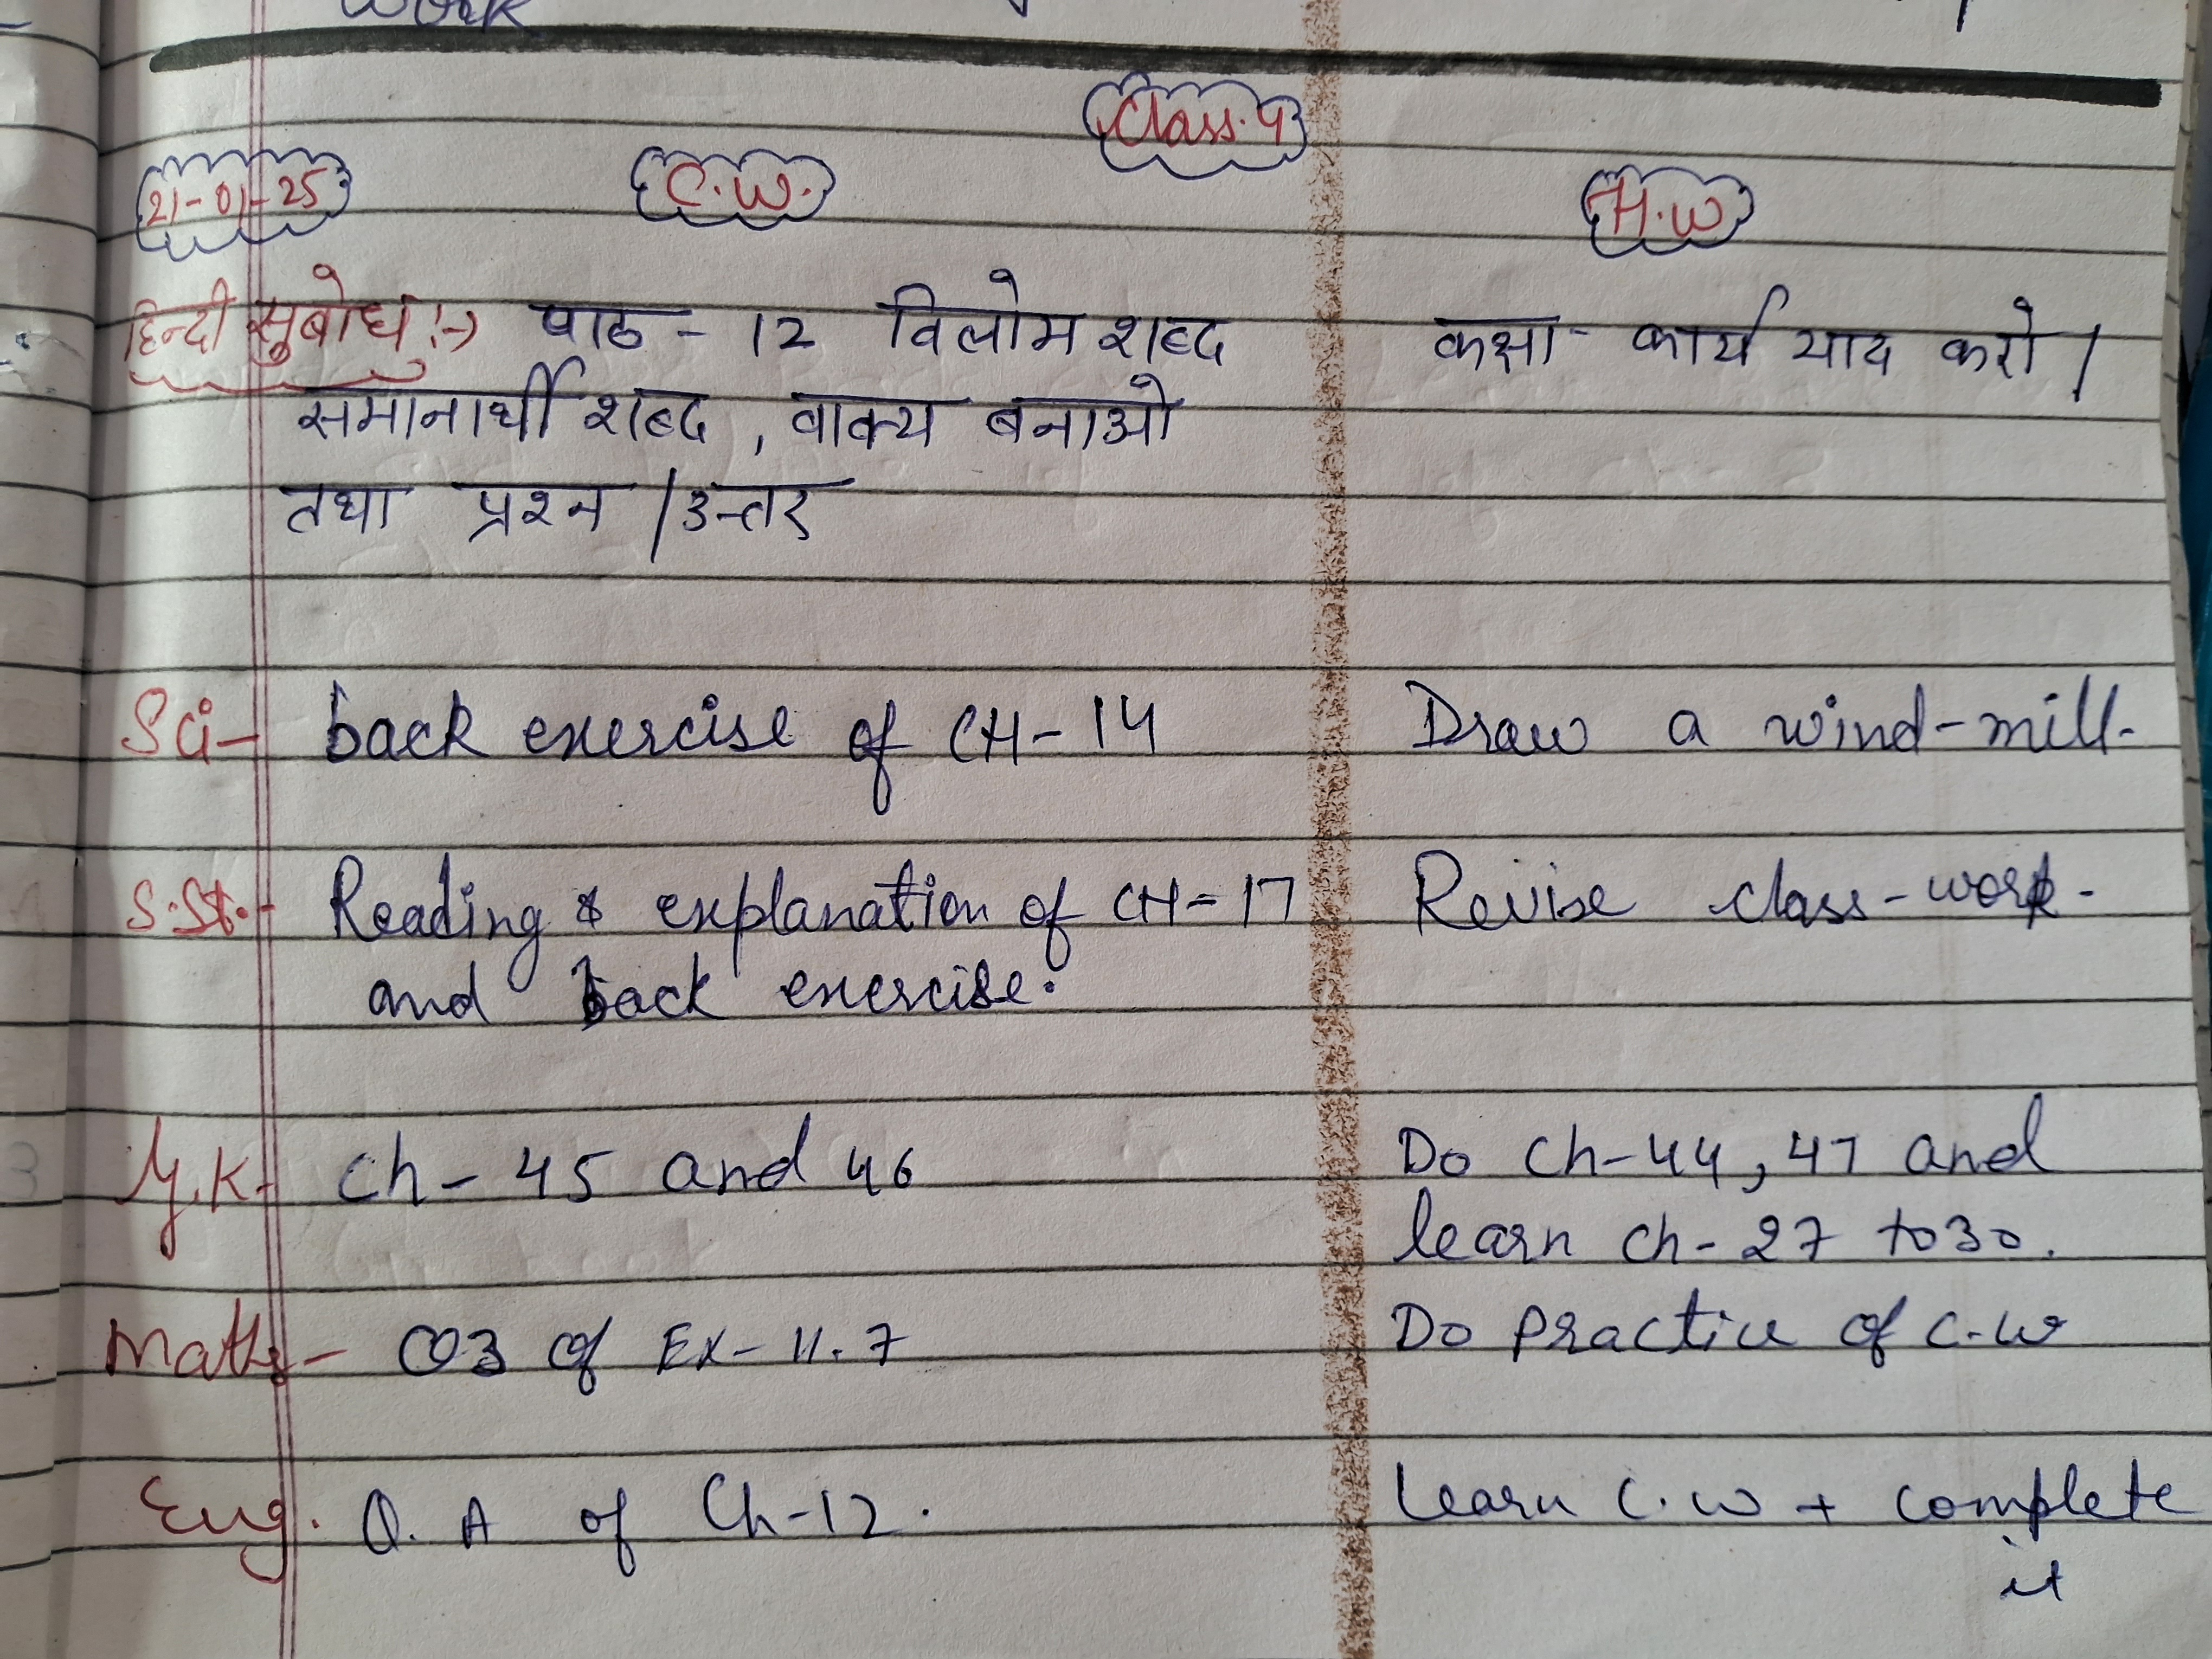 work
Class. 4
21-01-25 C.W. H.W
हिन्दी सुबोध :-> पाठ - 12 विलोम शब्द कक्षा - कार्य याद करो |
समानार्थी शब्द , वाक्य बनाओ
तथा प्रश्न / उत्तर
Sci- back exercise of CH- 14 Draw a wind-mill.
S.St.- Reading & explanation of CH-17 Revise class-work.
and back exercise.
G.K- Ch- 45 and 46 Do Ch-44, 47 and
learn Ch- 27 to 30.
Maths- Q3 of Ex- 11.7 Do Practice of C.W
Eng. Q. A of Ch-12. Learn C.W + complete
it